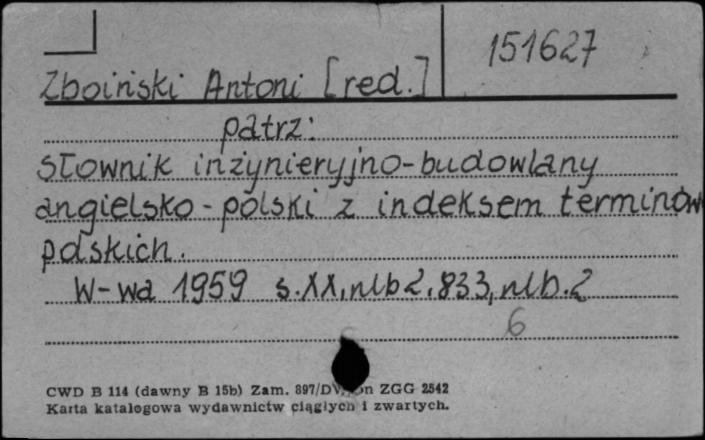 151627
Zboiński Antoni [red.]
patrz:
Słownik inżynieryjno-budowlany
angielsko-polski z indeksem terminów
polskich.
W-wa 1959 s.XX, nlb 2, 833, nlb. 2
6
CWD B 114 (dawny B 15b) Zam. 897/D ZGG 2542
Karta katalogowa wydawnictw ciągłych i zwartych.